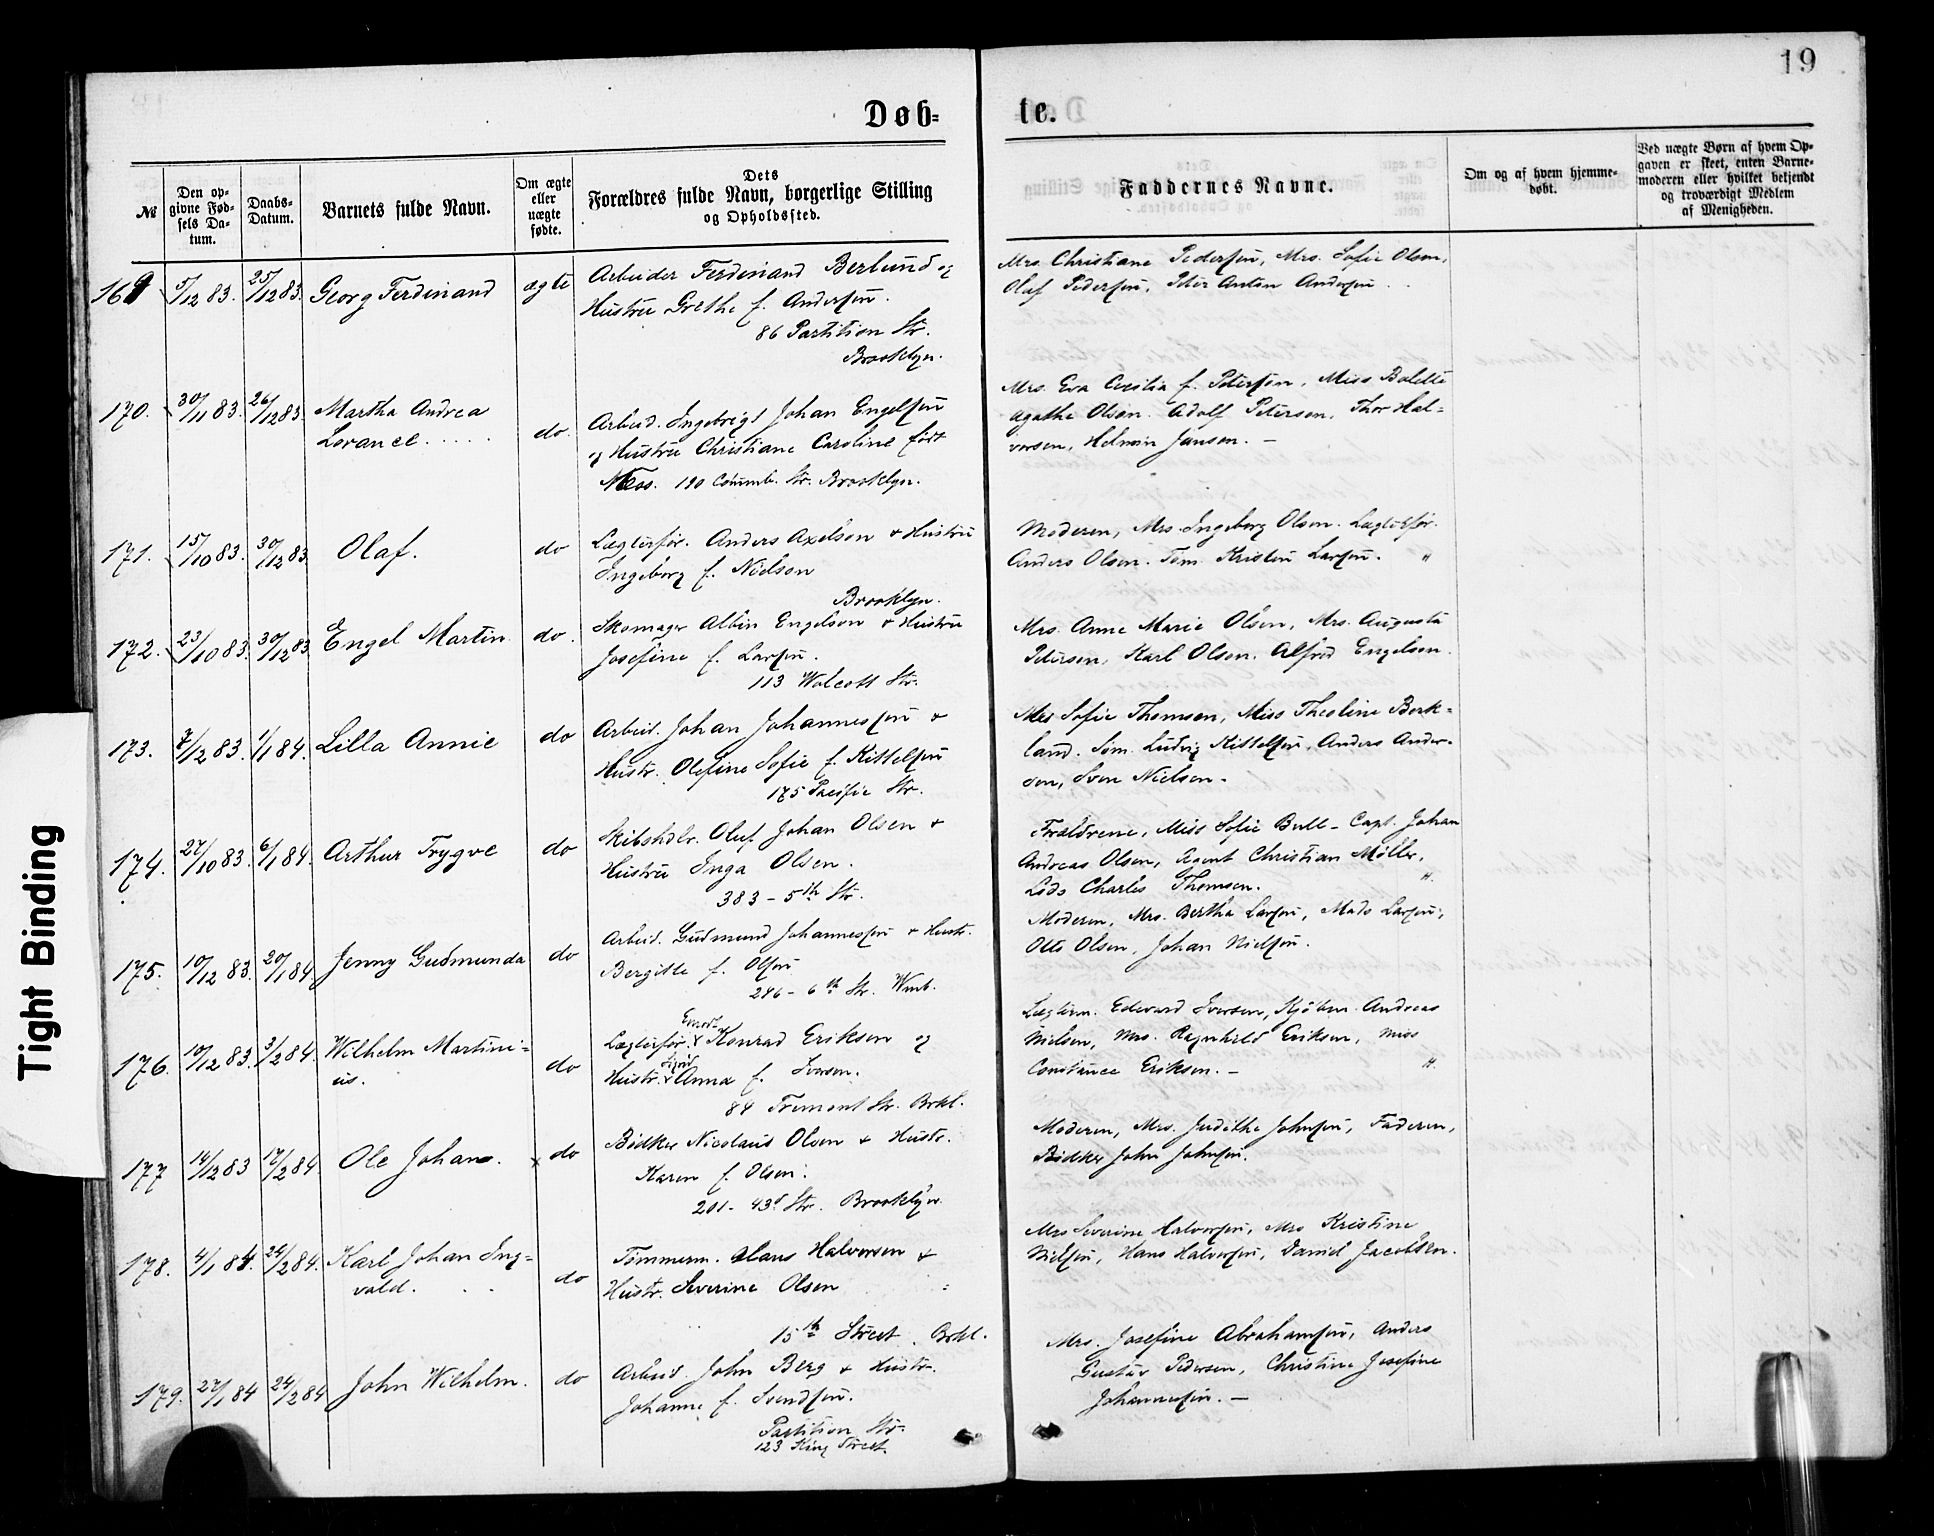 19
Døb-
te.
№
Den op-
givne Fød-
sels Da-
tum.
Daabs-
Datum.
Barnets fulde Navn.
Om ægte
eller
uægte
fødte.
Dets
Forældres fulde Navn, borgerlige Stilling
og Opholdssted.
Faddernes Navne.
Om og af hvem hjemme-
døbt.
Ved uægte Børn af hvem Op-
gaven er skeet, enten Barne-
moderen eller hvilket betjendt
og troværdigt Medlem
af Menigheden.
169 5/12 83. 25/12 83. Georg Ferdinand ægte
Arbeider Ferdinand Berlund og
Hustru Grethe f. Andersen.
86 Partition Str.
Brooklyn.
Mrs. Christiane Pedersen, Mrs. Sofie Olsen,
Olaf Pedersen, Peter Anton Andersen
170. 30/11 83. 26/12 83. Martha Andrea
Lovance do.
Arbeid. Ingebrigt Johan Engelsen
og Hustru Christiane Caroline født
Næss. 190 Columb. Str. Brooklyn.
Mrs. Eva Cecilia f. Petersen, Miss Bolette
Agathe Olsen. Adolf Petersen, Thor Hal-
vorsen, Helmin Jansen. —
171. 15/10 83. 30/12 83 Olaf. do
Lægterfør. Anders Axelson & Hustru
Ingeborg f. Nielson
Brooklyn.
Moderen, Mrs. Ingeborg Olsen. Lægterfør.
Anders Olsen. Tøm. Kristen Larsen. "
172. 23/10 83. 30/12 83 Engel Martin do.
Skomager Albin Engelson & Hustru
Josefine f. Larsen.
113 Wolcott Str.
Mrs. Anne Marie Olsen, Mrs. Augusta
Petersen, Karl Olsen. Alfred Engelsen.
173. 7/12 83. 1/1 84. Lilla Annie do
Arbeid. Johan Johannessen &
Hustr. Olefine Sofie f. Kittelsen
175 Pacific Str.
Mrs Sofie Thomsen, Miss Theoline Berk-
land. Søm. Ludvig Kittelsen, Anders Ander-
sen, Sven Nielsen.
174. 27/10 83. 6/1 84. Arthur Trygve do
Skibshdlr. Oluf Johan Olsen &
Hustru Inga Olsen.
383 - 5th Str.
Forældrene, Miss Sofie Bull - Capt. Johan
Andreas Olsen, Agent Christian Møller,
Lods Charles Thomsen. "
175. 10/12 83. 20/1 84. Jenny Gudmunda do
Arbeid. Gudmund Johannessen & Hustr.
Bergitte f. Olsen
246 - 6th Str. Wmb.
Moderen, Mrs. Bertha Larsen, Mads Larsen,
Otto Olsen, Johan Nielsen.
176. 10/12 83. 3/2 84. Wilhelm Martini-
us. do
Lægterfør. Konrad Eriksen og
Hustr. Anna f. Iversen.
84 Tremont Str. Brkl.
Lægterm. Edevard Iversen, Kjøbm. Andreas
Nielsen, Mrs. Ragnhild Eriksen, Miss
Constance Eriksen. — "
177 14/12 83 17/2 84 Ole Johan. x do
Bødker Nicolaus Olsen & Hustr.
Karen f. Olsen.
201 - 43d Str. Brooklyn.
Moderen, Mrs. Judithe Johnsen, Faderen,
Bødker John Johnsen.
178. 4/1 84. 24/2 84. Karl Johan Ing-
vald. do
Tømmerm. Hans Halvorsen &
Hustr. Severine Olsen
15th Street. Brkl.
Mrs Severine Halvorsen, Mrs Kristine
Nielsen, Hans Halvorsen, Daniel Jacobsen.
179. 27/1 84 24/2 84 John Wilhelm. do
Arbeid. John Berg & Hustr.
Johanne f. Svendsen.
Partition Str.
123 King Street.
Mrs. Josefine Abrahamsen, Anders
Gustav Pedersen, Christine Josefine
Johannesen. —
Tight Binding